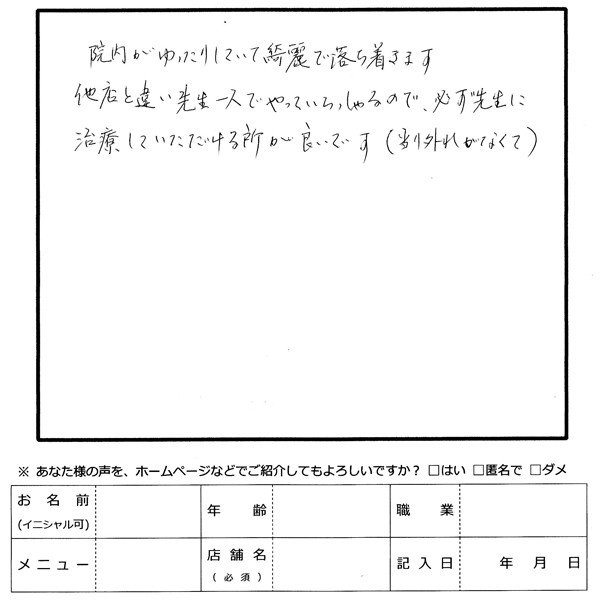 院内がゆったりしていて綺麗で落ち着きます
他店と違い先生一人でやっていらっしゃるので、必ず先生に
治療していただける所が良いです(当り外れがなくて)
※ あなた様の声を、ホームページなどでご紹介してもよろしいですか? □はい □匿名で □ダメ
お名前 年齢 職業
(イニシャル可)
メニュー 店舗名 記入日 年 月 日
(必須)